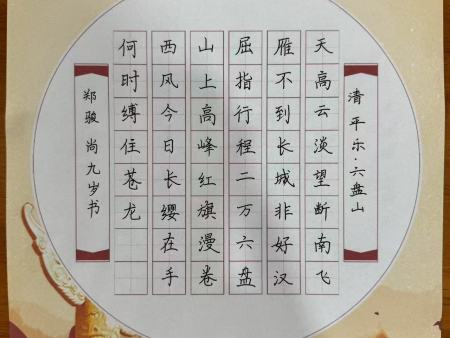 清平乐·六盘山
天高云淡望断南飞
雁不到长城非好汉
屈指行程二万六盘
山上高峰红旗漫卷
西风今日长缨在手
何时缚住苍龙
郑骏 尚九岁书